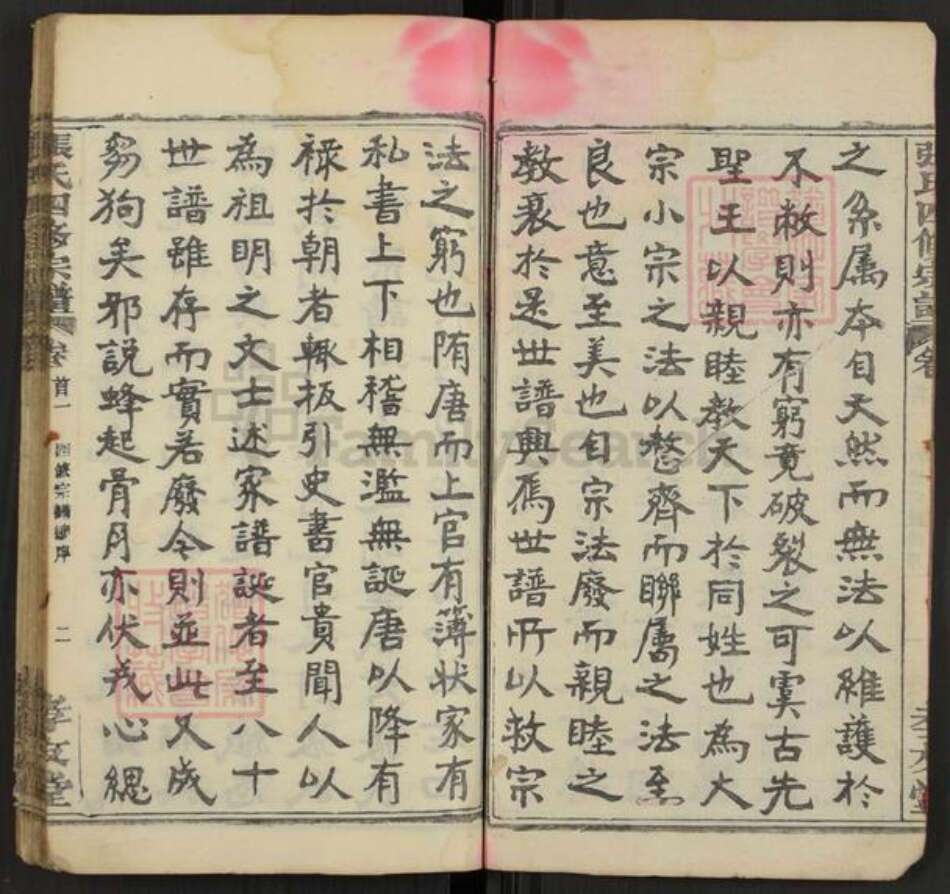 之系屬本自天然而無法以維護於
不敝則亦有窮竟破裂之可虞古先
聖王以親睦教天下於同姓也為大
宗小宗之法以整齊而聯屬之法至
良也意至美也自宗法廢而親睦之
教衰於是世譜興焉世譜所以救宗
法之窮也隋唐而上官有簿状家有
私書上下相稽無濫無誕唐以降有
祿於朝者輙扳引史書官貴聞人以
為祖明之文士述家譜誕者至八十
世譜雖存而實若廢今則並此又成
芻狗矣邪說蜂起骨月亦伏戎心總
張氏四修宗譜
卷首一
四修宗譜總序
二
孝友堂
FamilySearch